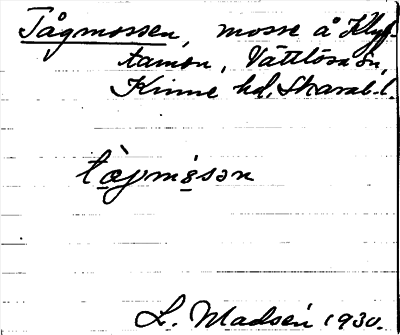 Tågmossen, mosse å Klyf-
tamon, Vättlösa sn,
Kinne hd, Skarab. l.
tågmósan
L. Madsén 1930.